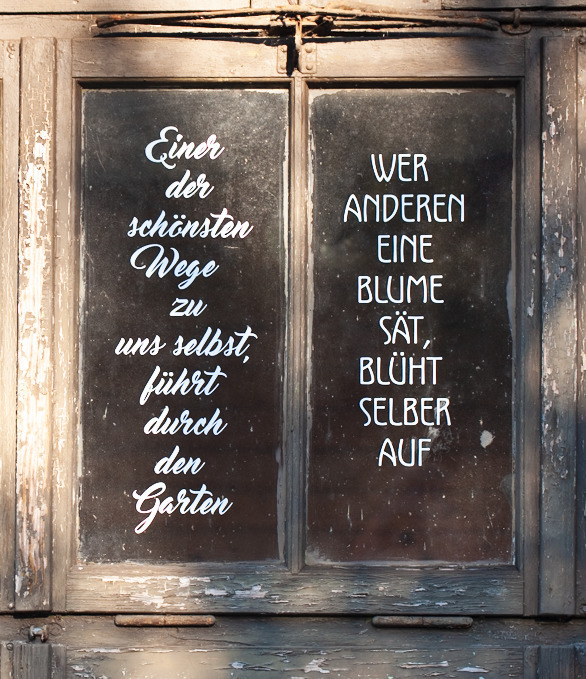 Einer
der
schönsten
Wege
zu
uns selbst,
führt
durch
den
Garten
WER
ANDEREN
EINE
BLUME
SÄT,
BLÜHT
SELBER
AUF